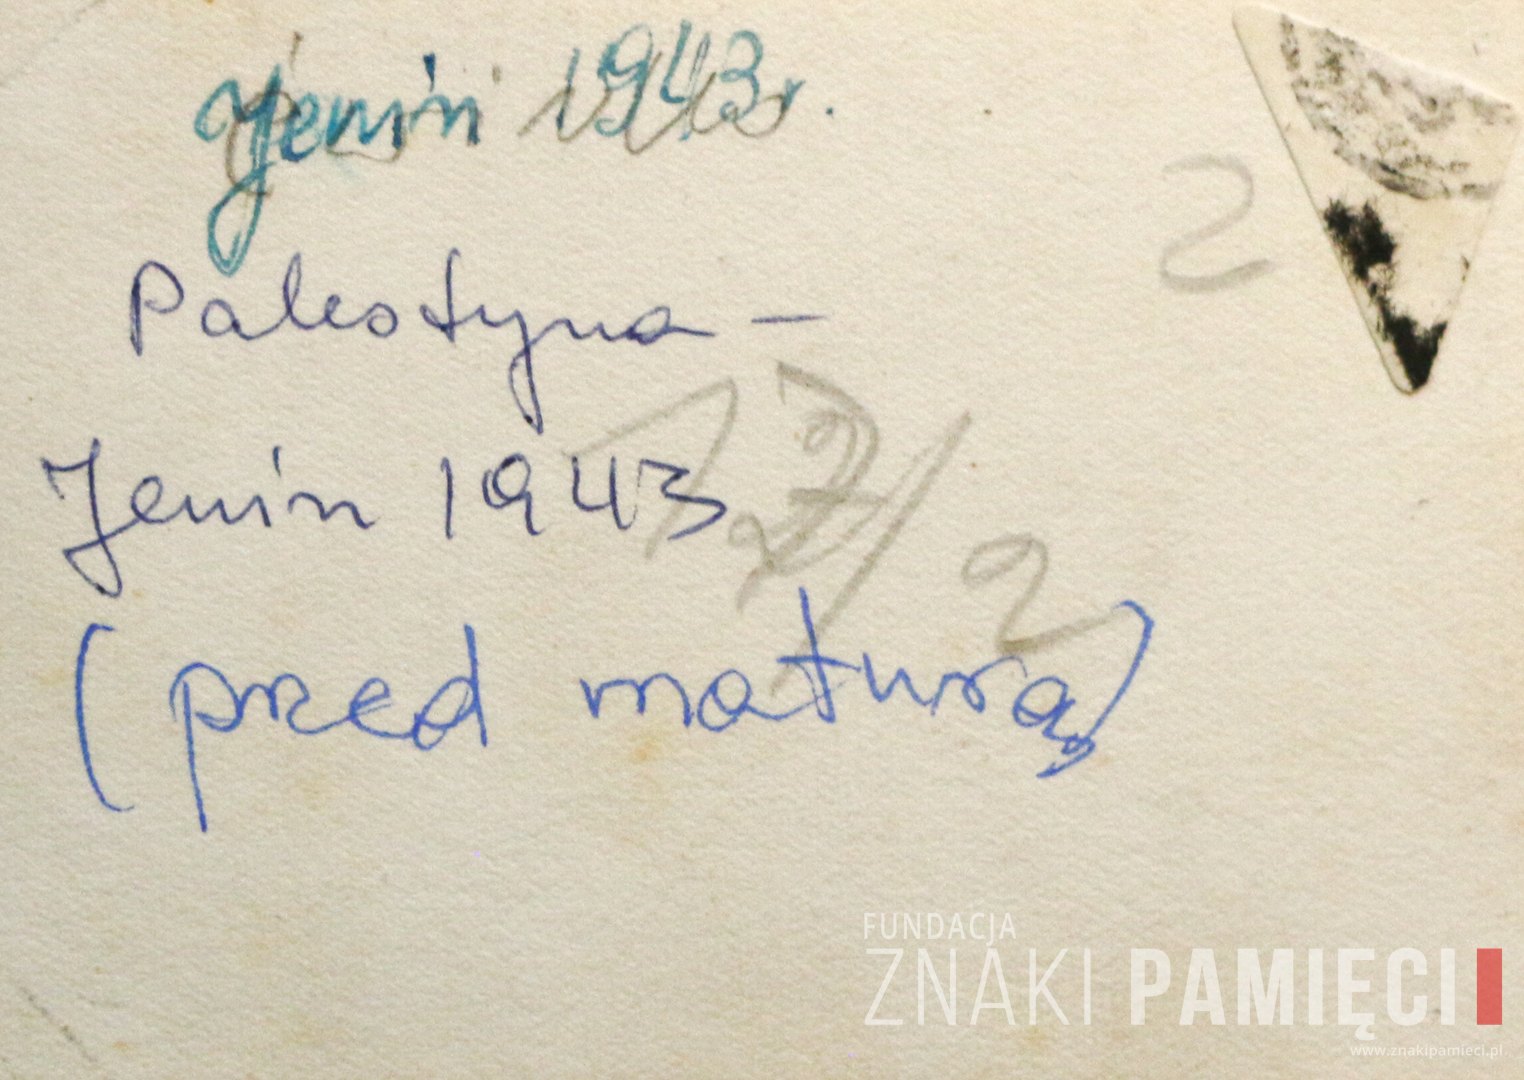 Jenin 1943 r.
2
Palestyna –
Jenin 1943
17/2
(przed maturą)
FUNDACJA
ZNAKI PAMIĘCI
www.znakipamieci.pl